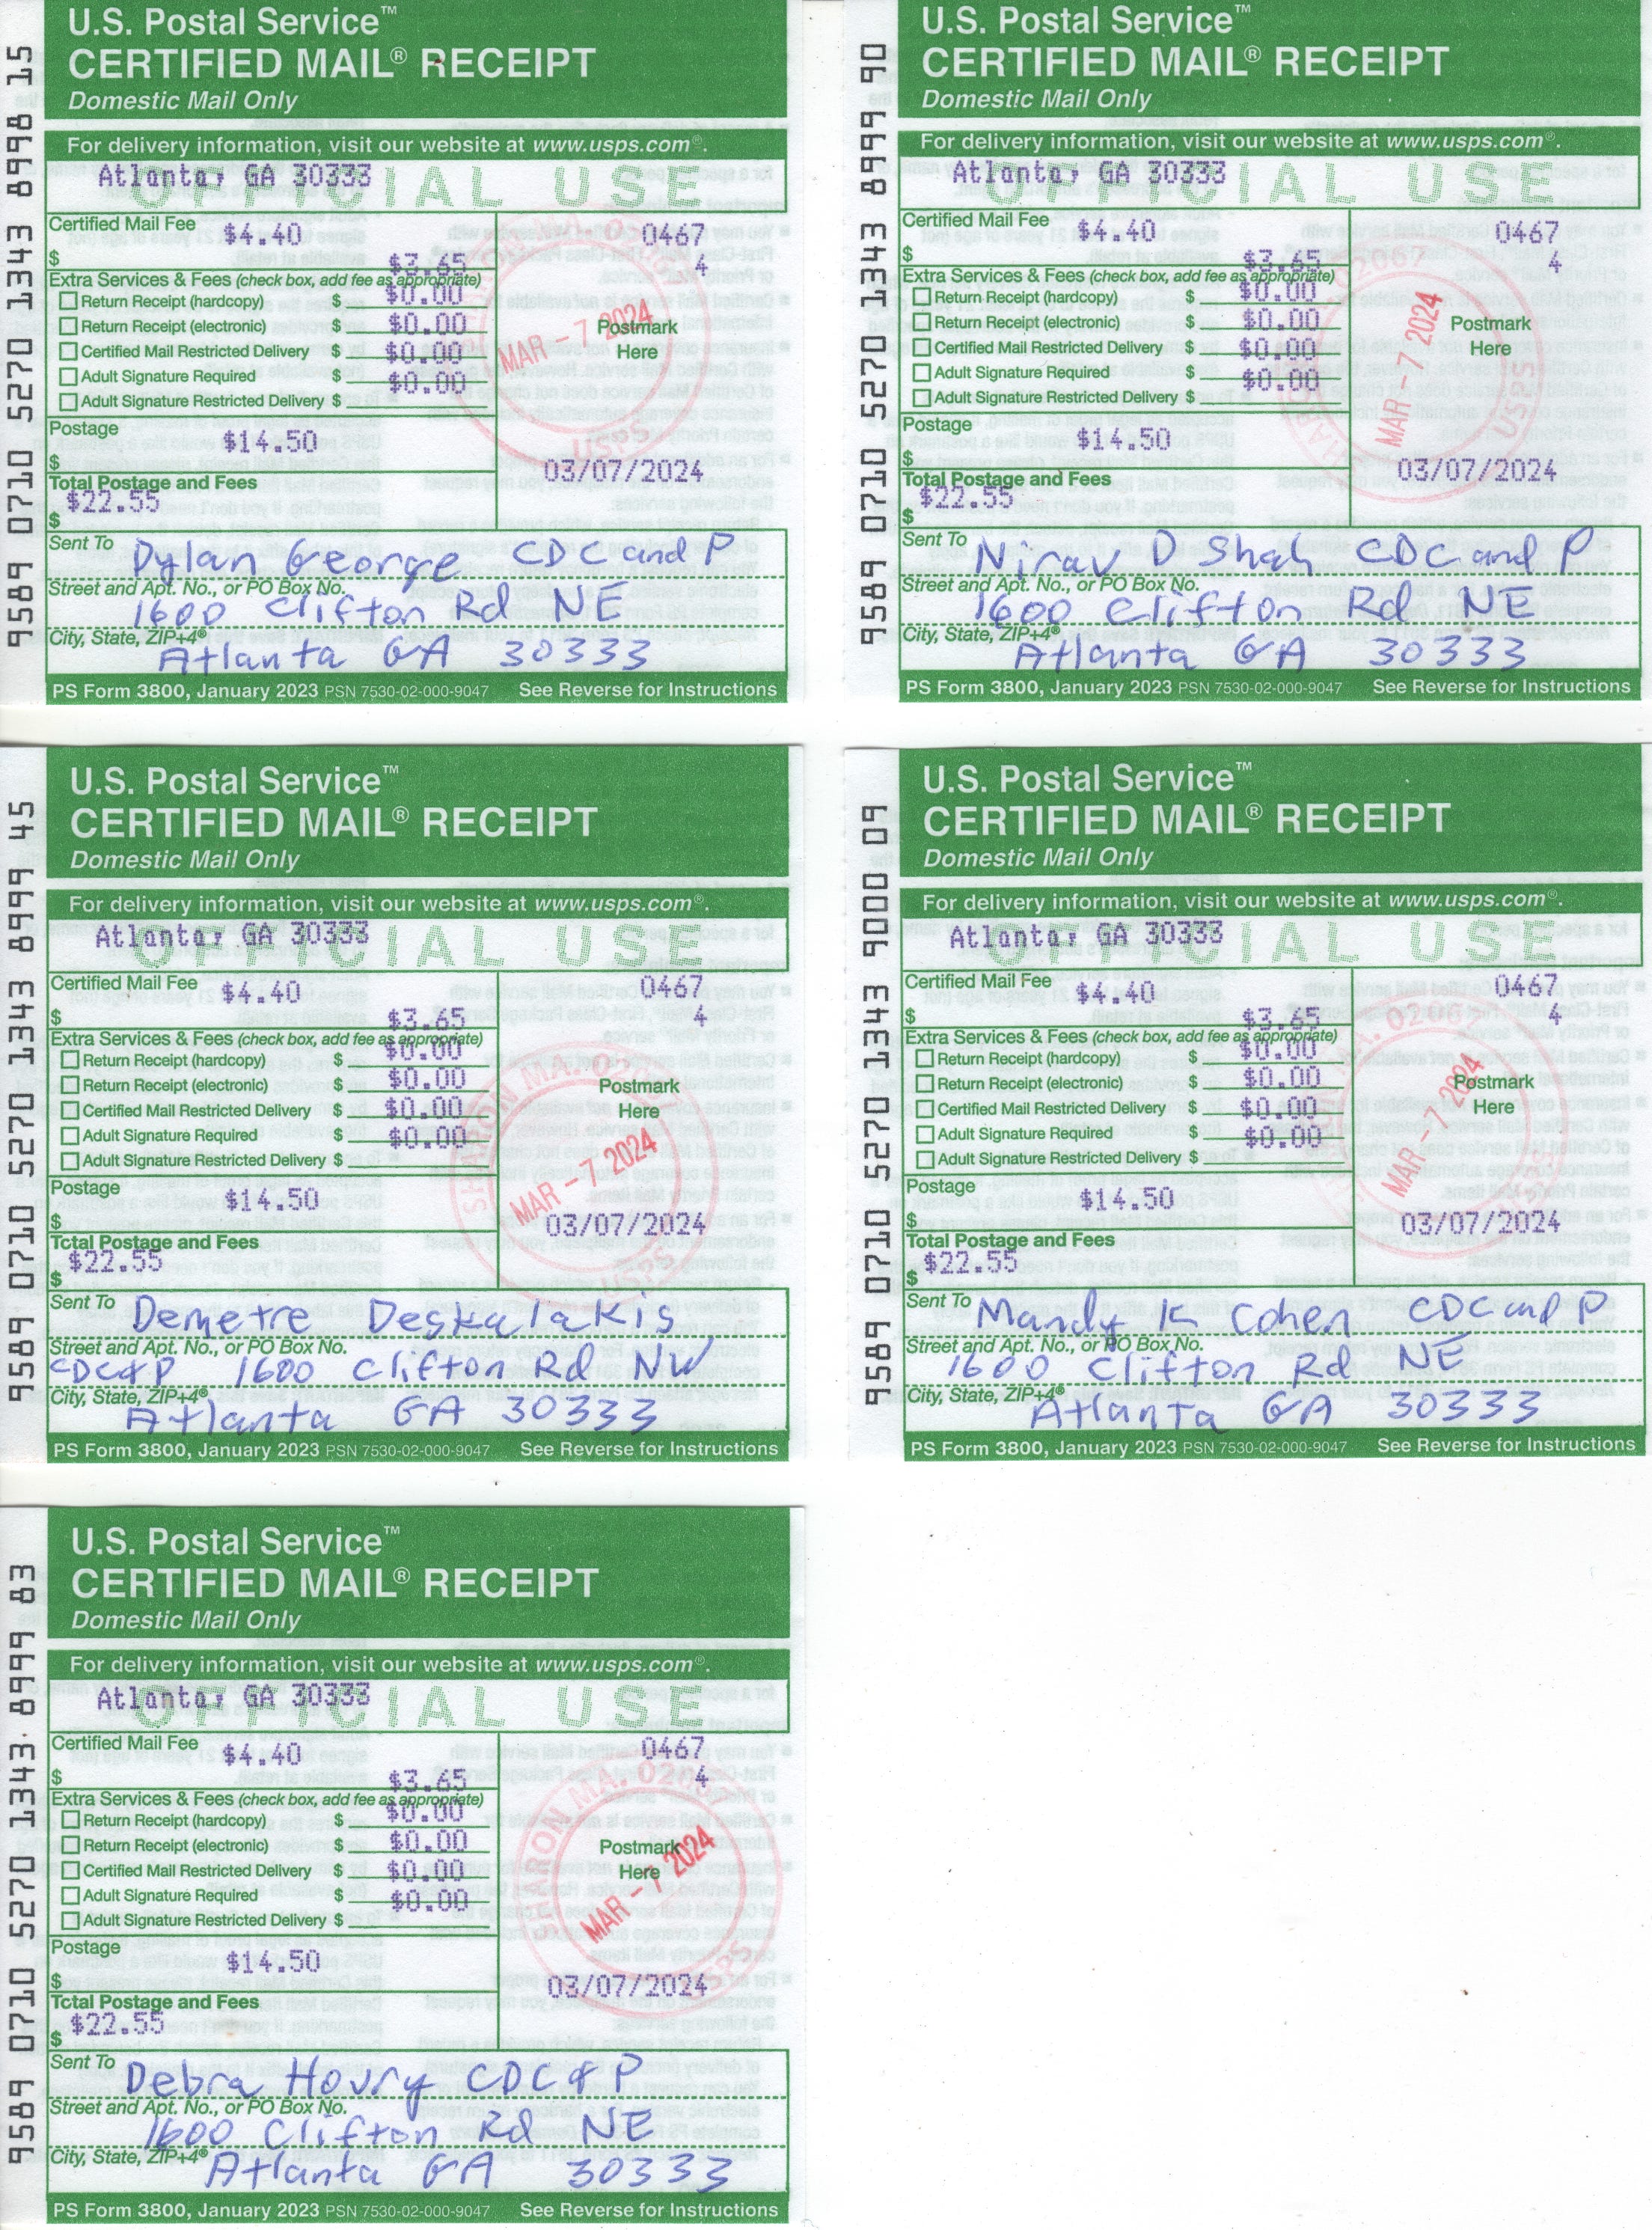 9589 0710 5270 1343 8998 15
U.S. Postal Service™
CERTIFIED MAIL® RECEIPT
Domestic Mail Only
For delivery information, visit our website at www.usps.com®.
OFFICIAL USE
Atlanta, GA 30333
Certified Mail Fee $4.40
$
$3.65
0467
4
Extra Services & Fees (check box, add fee as appropriate)
Return Receipt (hardcopy) $ $0.00
Return Receipt (electronic) $ $0.00
Certified Mail Restricted Delivery $ $0.00
Adult Signature Required $ $0.00
Adult Signature Restricted Delivery $
Postmark
Here
MAR - 7 2024
USPS
Postage
$ $14.50
03/07/2024
Total Postage and Fees
$ $22.55
Sent To Dylan George CDC and P
Street and Apt. No., or PO Box No.
1600 Clifton Rd NE
City, State, ZIP+4®
Atlanta GA 30333
PS Form 3800, January 2023 PSN 7530-02-000-9047 See Reverse for Instructions
9589 0710 5270 1343 8999 90
U.S. Postal Service™
CERTIFIED MAIL® RECEIPT
Domestic Mail Only
For delivery information, visit our website at www.usps.com®.
OFFICIAL USE
Atlanta, GA 30333
Certified Mail Fee $4.40
$
$3.65
0467
4
Extra Services & Fees (check box, add fee as appropriate)
Return Receipt (hardcopy) $ $0.00
Return Receipt (electronic) $ $0.00
Certified Mail Restricted Delivery $ $0.00
Adult Signature Required $ $0.00
Adult Signature Restricted Delivery $
Postmark
Here
MAR - 7 2024
USPS
Postage
$ $14.50
03/07/2024
Total Postage and Fees
$ $22.55
Sent To Nirav D Shah CDC and P
Street and Apt. No., or PO Box No.
1600 Clifton Rd NE
City, State, ZIP+4®
Atlanta GA 30333
PS Form 3800, January 2023 PSN 7530-02-000-9047 See Reverse for Instructions
9589 0710 5270 1343 8999 45
U.S. Postal Service™
CERTIFIED MAIL® RECEIPT
Domestic Mail Only
For delivery information, visit our website at www.usps.com®.
OFFICIAL USE
Atlanta, GA 30333
Certified Mail Fee $4.40
$
$3.65
0467
4
Extra Services & Fees (check box, add fee as appropriate)
Return Receipt (hardcopy) $ $0.00
Return Receipt (electronic) $ $0.00
Certified Mail Restricted Delivery $ $0.00
Adult Signature Required $ $0.00
Adult Signature Restricted Delivery $
Postmark
Here
SHARON MA.
MAR - 7 2024
USPS
Postage
$ $14.50
03/07/2024
Total Postage and Fees
$ $22.55
Sent To Demetre Deskalakis
Street and Apt. No., or PO Box No.
CDC&P 1600 Clifton Rd NW
City, State, ZIP+4®
Atlanta GA 30333
PS Form 3800, January 2023 PSN 7530-02-000-9047 See Reverse for Instructions
9589 0710 5270 1343 9000 09
U.S. Postal Service™
CERTIFIED MAIL® RECEIPT
Domestic Mail Only
For delivery information, visit our website at www.usps.com®.
OFFICIAL USE
Atlanta, GA 30333
Certified Mail Fee $4.40
$
$3.65
0467
4
Extra Services & Fees (check box, add fee as appropriate)
Return Receipt (hardcopy) $ $0.00
Return Receipt (electronic) $ $0.00
Certified Mail Restricted Delivery $ $0.00
Adult Signature Required $ $0.00
Adult Signature Restricted Delivery $
Postmark
Here
MAR - 7 2024
Postage
$ $14.50
03/07/2024
Total Postage and Fees
$ $22.55
Sent To Mandy K Cohen CDC and P
Street and Apt. No., or PO Box No.
1600 Clifton Rd NE
City, State, ZIP+4®
Atlanta GA 30333
PS Form 3800, January 2023 PSN 7530-02-000-9047 See Reverse for Instructions
9589 0710 5270 1343 8999 83
U.S. Postal Service™
CERTIFIED MAIL® RECEIPT
Domestic Mail Only
For delivery information, visit our website at www.usps.com®.
OFFICIAL USE
Atlanta, GA 30333
Certified Mail Fee $4.40
$
$3.65
0467
4
Extra Services & Fees (check box, add fee as appropriate)
Return Receipt (hardcopy) $ $0.00
Return Receipt (electronic) $ $0.00
Certified Mail Restricted Delivery $ $0.00
Adult Signature Required $ $0.00
Adult Signature Restricted Delivery $
Postmark
Here
SHARON MA.
MAR - 7 2024
USPS
Postage
$ $14.50
03/07/2024
Total Postage and Fees
$ $22.55
Sent To Debra Houry CDC&P
Street and Apt. No., or PO Box No.
1600 Clifton Rd NE
City, State, ZIP+4®
Atlanta GA 30333
PS Form 3800, January 2023 PSN 7530-02-000-9047 See Reverse for Instructions